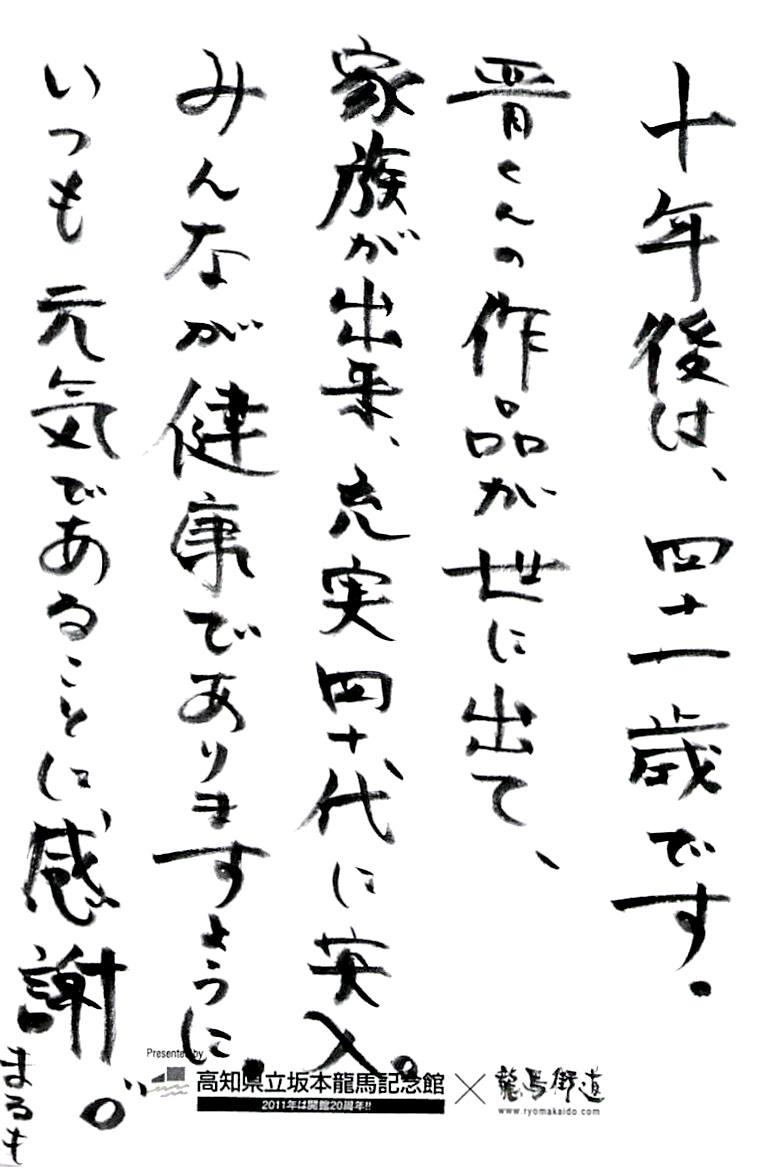 十年後は、四十一歳です。
晋くんの作品が世に出て、
家族が出来、充実四十代に突入。
みんなが健康でありますように。
いつも元気であることに、感謝。
まるも
Presented by
高知県立坂本龍馬記念館 × 龍馬街道
2011年は開館20周年!!
www.ryomakaido.com